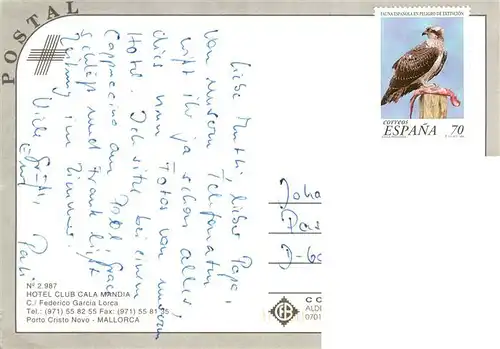 POSTAL
FAUNA ESPAÑOLA EN PELIGRO DE EXTINCIÓN
correos
ESPAÑA 70
Liebe Mutti, lieber Papa,
von unserem Telefonat
wißt ihr ja schon alles,
dies nun Fotos von unserem
Hotel. Ich sitze bei einem
Cappuccino am Pool,
schläft und Frank liest
Zeitung im Zimmer.
Viele Grüße,
Joha
D-6
Nº 2.987
HOTEL CLUB CALA MANDIA
C./ Federico Garcia Lorca
Tel.: (971) 55 82 55 Fax: (971) 55 81 35
Porto Cristo Novo - MALLORCA
ALD
0701